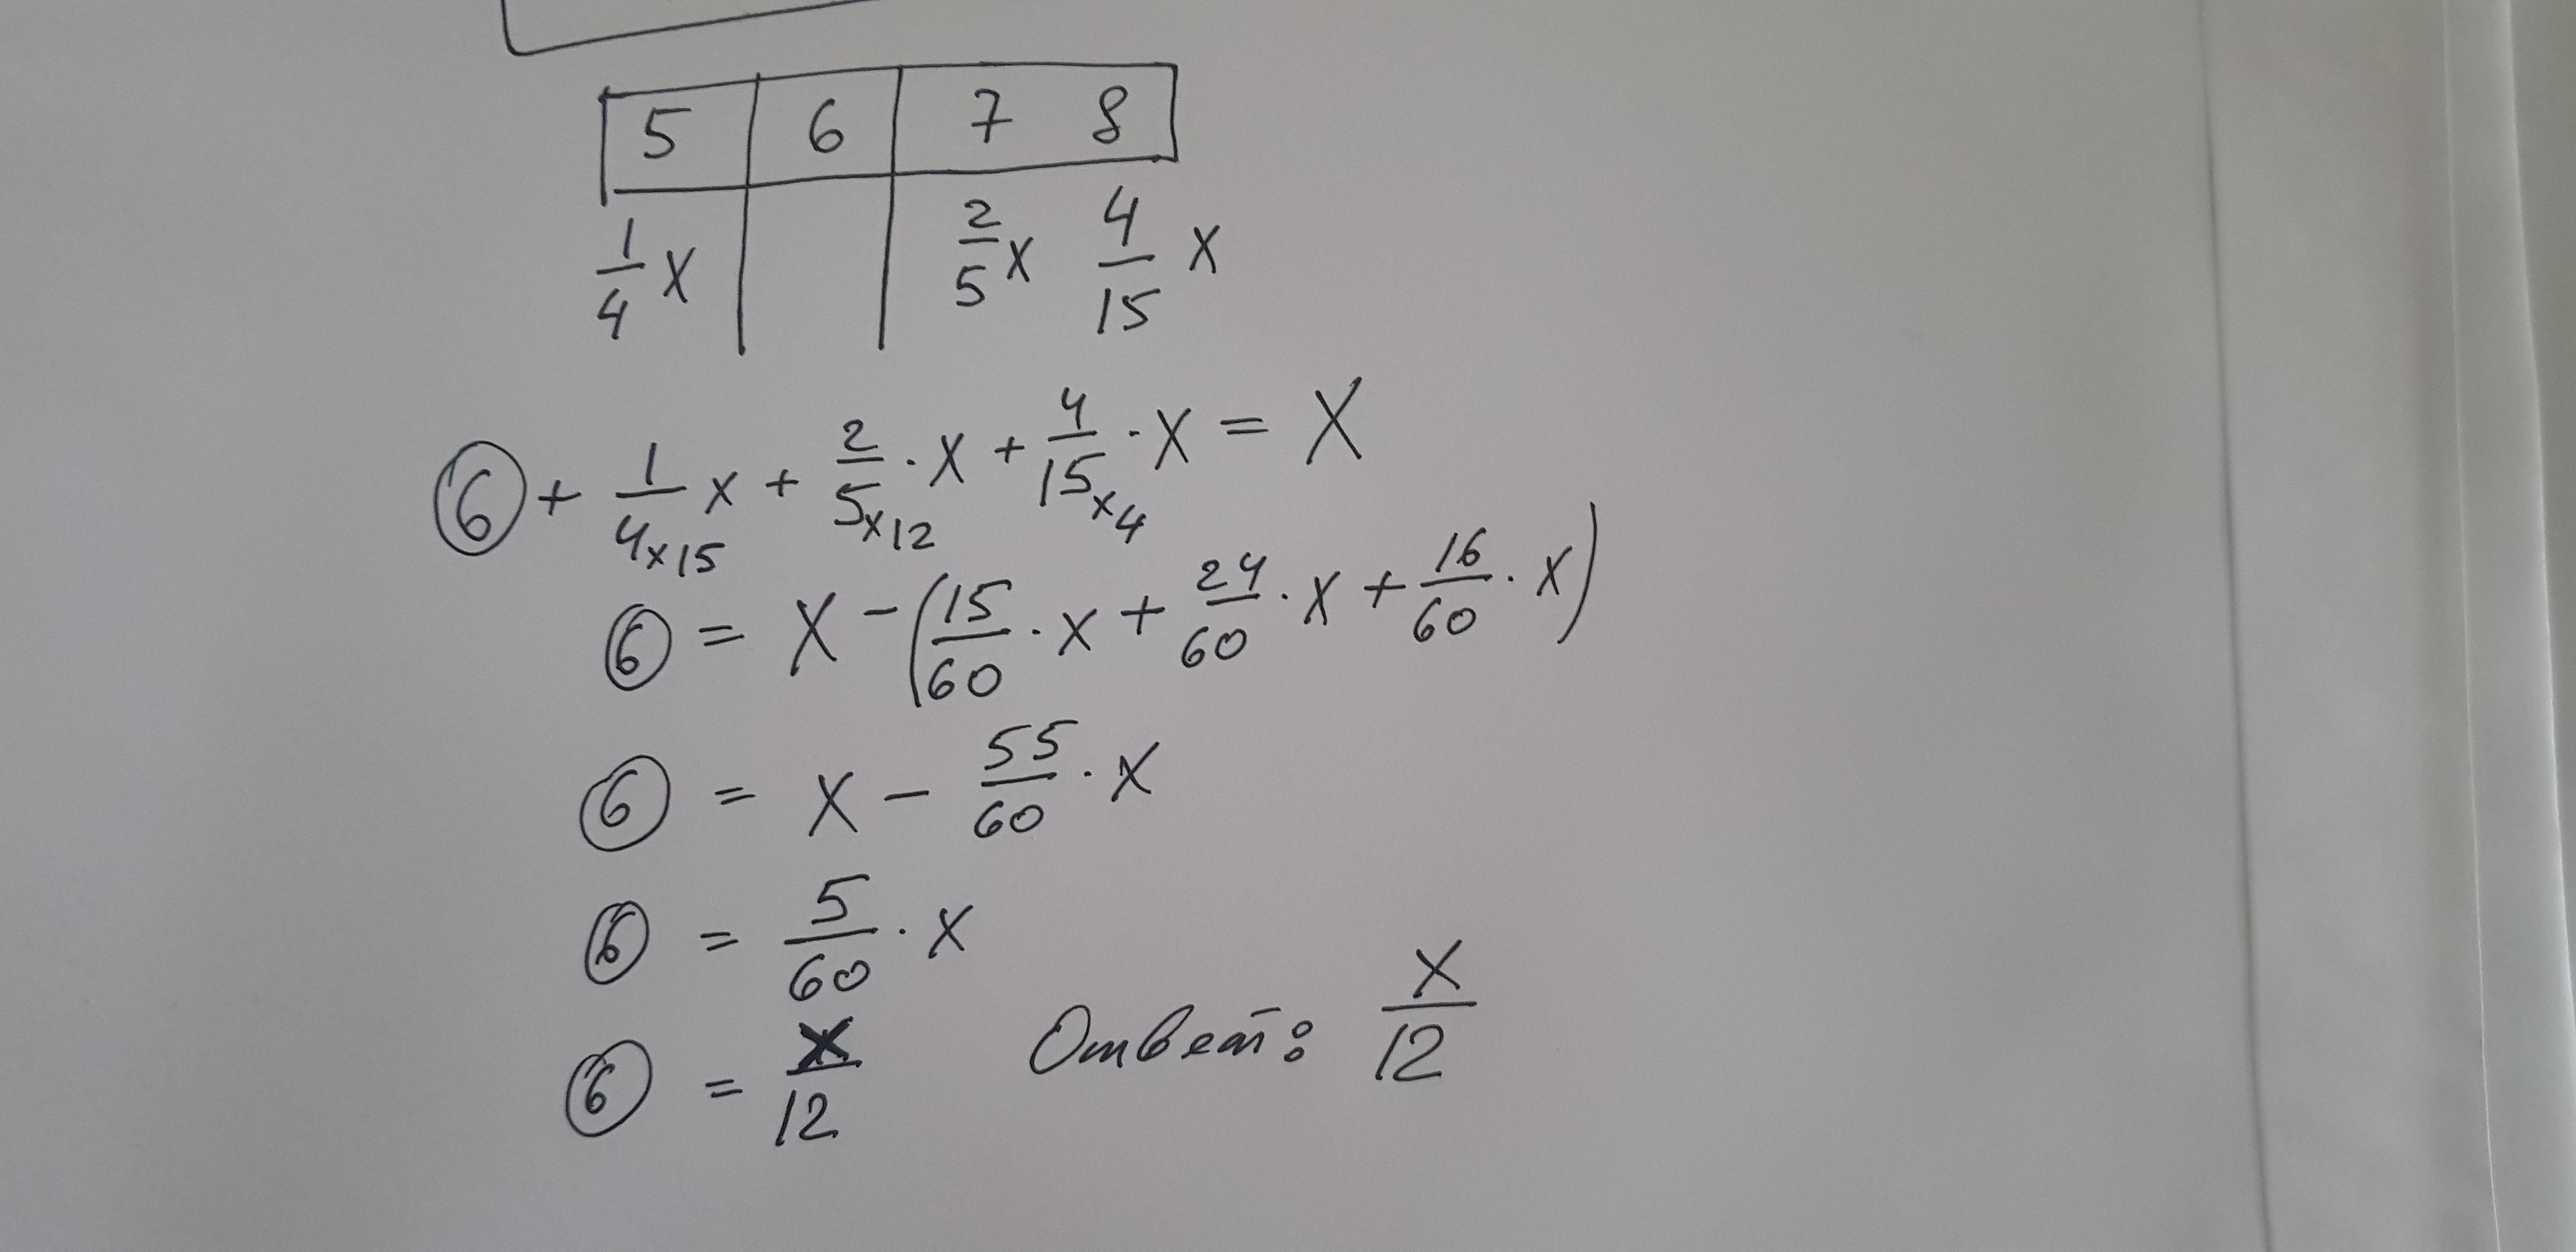 5 6 7 8
1/4 x 2/5 x 4/15 x
⑥ + 1/4×15 x + 2/5×12 · x + 4/15×4 · x = x
⑥ = x - (15/60 · x + 24/60 · x + 16/60 · x)
⑥ = x - 55/60 · x
⑥ = 5/60 · x
⑥ = x/12 Ответ: x/12